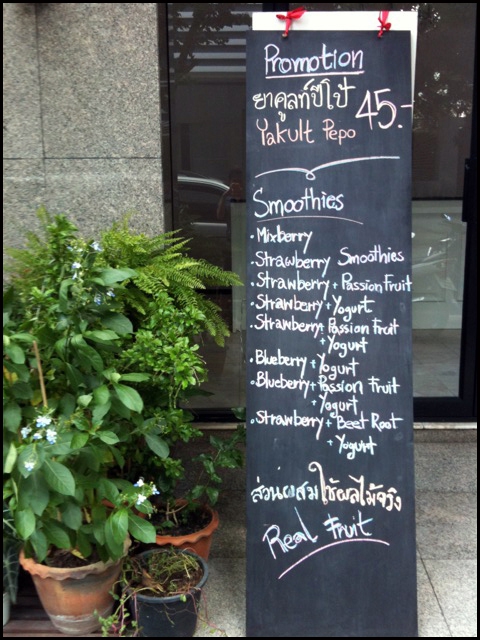 Promotion
ยาคูลท์ปีโป้ 45.-
Yakult Pepo
Smoothies
• Mixberry
• Strawberry Smoothies
• Strawberry + Passion Fruit
• Strawberry + Yogurt
• Strawberry + Passion Fruit
+ Yogurt
• Blueberry + Yogurt
• Blueberry + Passion Fruit
+ Yogurt
• Strawberry + Beet Root
+ Yogurt
ส่วนผสมใช้ผลไม้จริง
Real Fruit